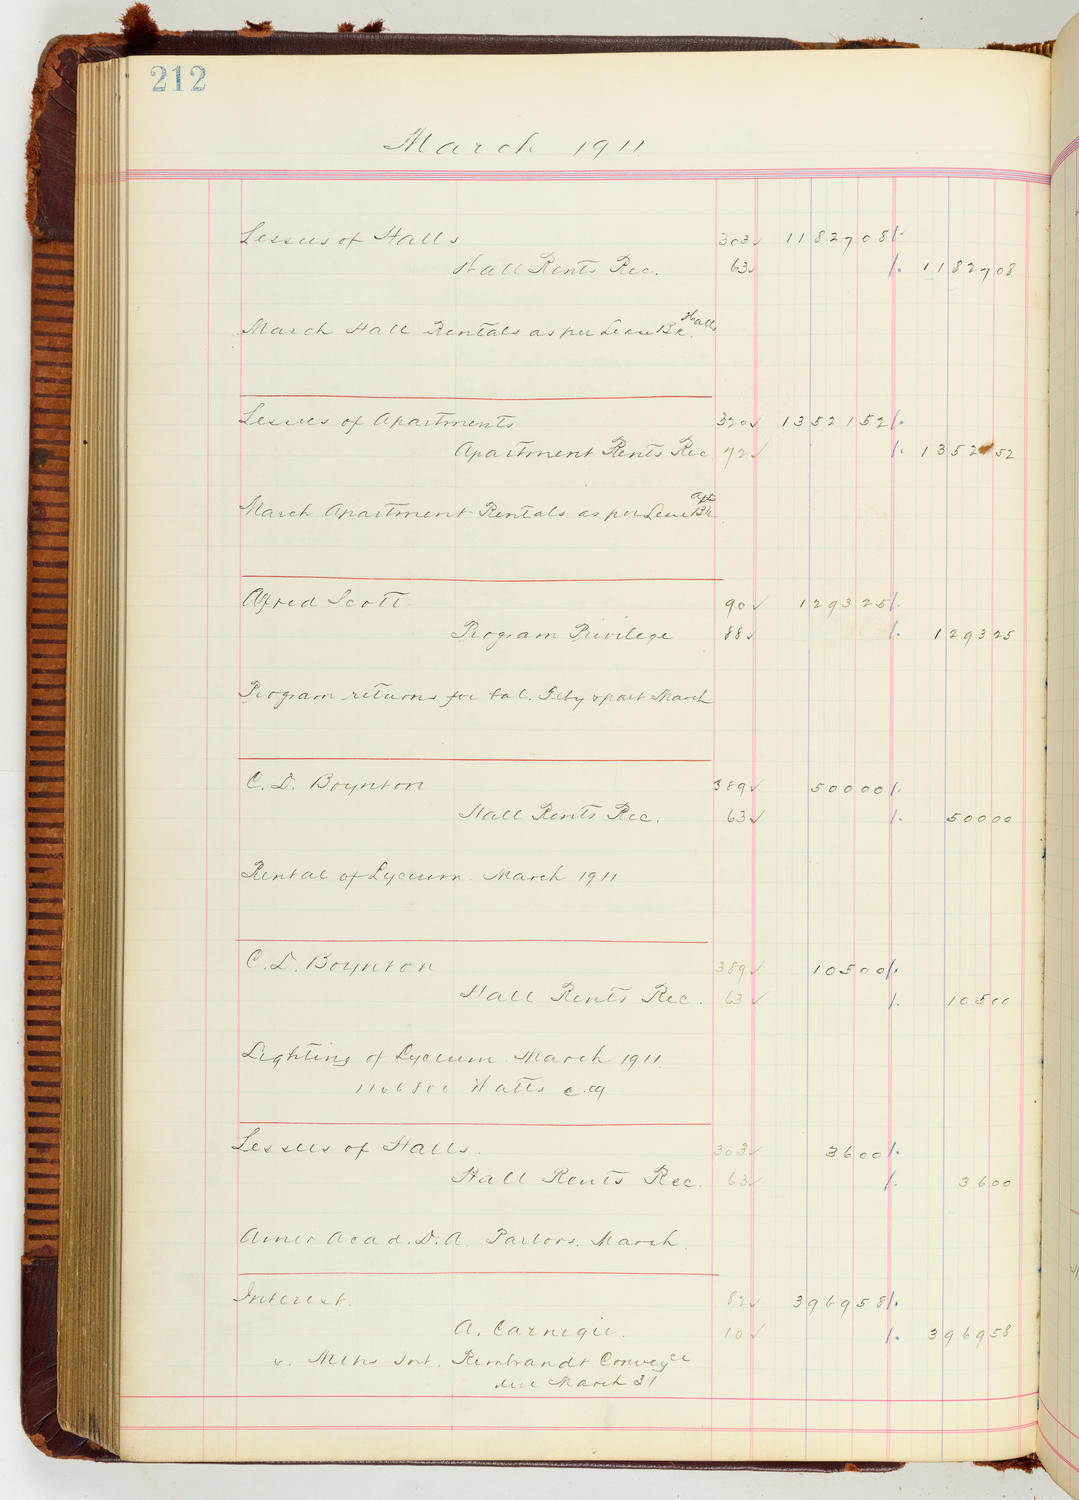 212
March 1911
Lessees of Halls 303 ✓ 11827 08 /.
Hall Rents Rec. 63 ✓ /. 11827 08
March Hall Rentals as per Lease Bk. Halls
Lessees of Apartments 320 ✓ 13521 52 /.
Apartment Rents Rec 72 ✓ /. 1352 52
March Apartment Rentals as per Lease Apt Bk
Alfred Scott 90 ✓ 1293 25 /.
Program Privilege 88 ✓ /. 1293 25
Program returns for bal. Feby & part March
C. D. Boynton 389 ✓ 500 00 /.
Hall Rents Rec. 63 ✓ /. 500 00
Rental of Lyceum. March 1911
C. D. Boynton 389 ✓ 105 00 /.
Hall Rents Rec. 63 ✓ /. 105 00
Lighting of Lyceum. March 1911.
Watts
Lessees of Halls. 303 ✓ 36 00 /.
Hall Rents Rec. 63 ✓ /. 36 00
Amer Acad. D. A. Parlors. March.
Interest. 82 ✓ 3969 58 /.
A. Carnegie. 10 ✓ /. 3969 58
Mths Int. Rembrandt Conveyce
due March 31